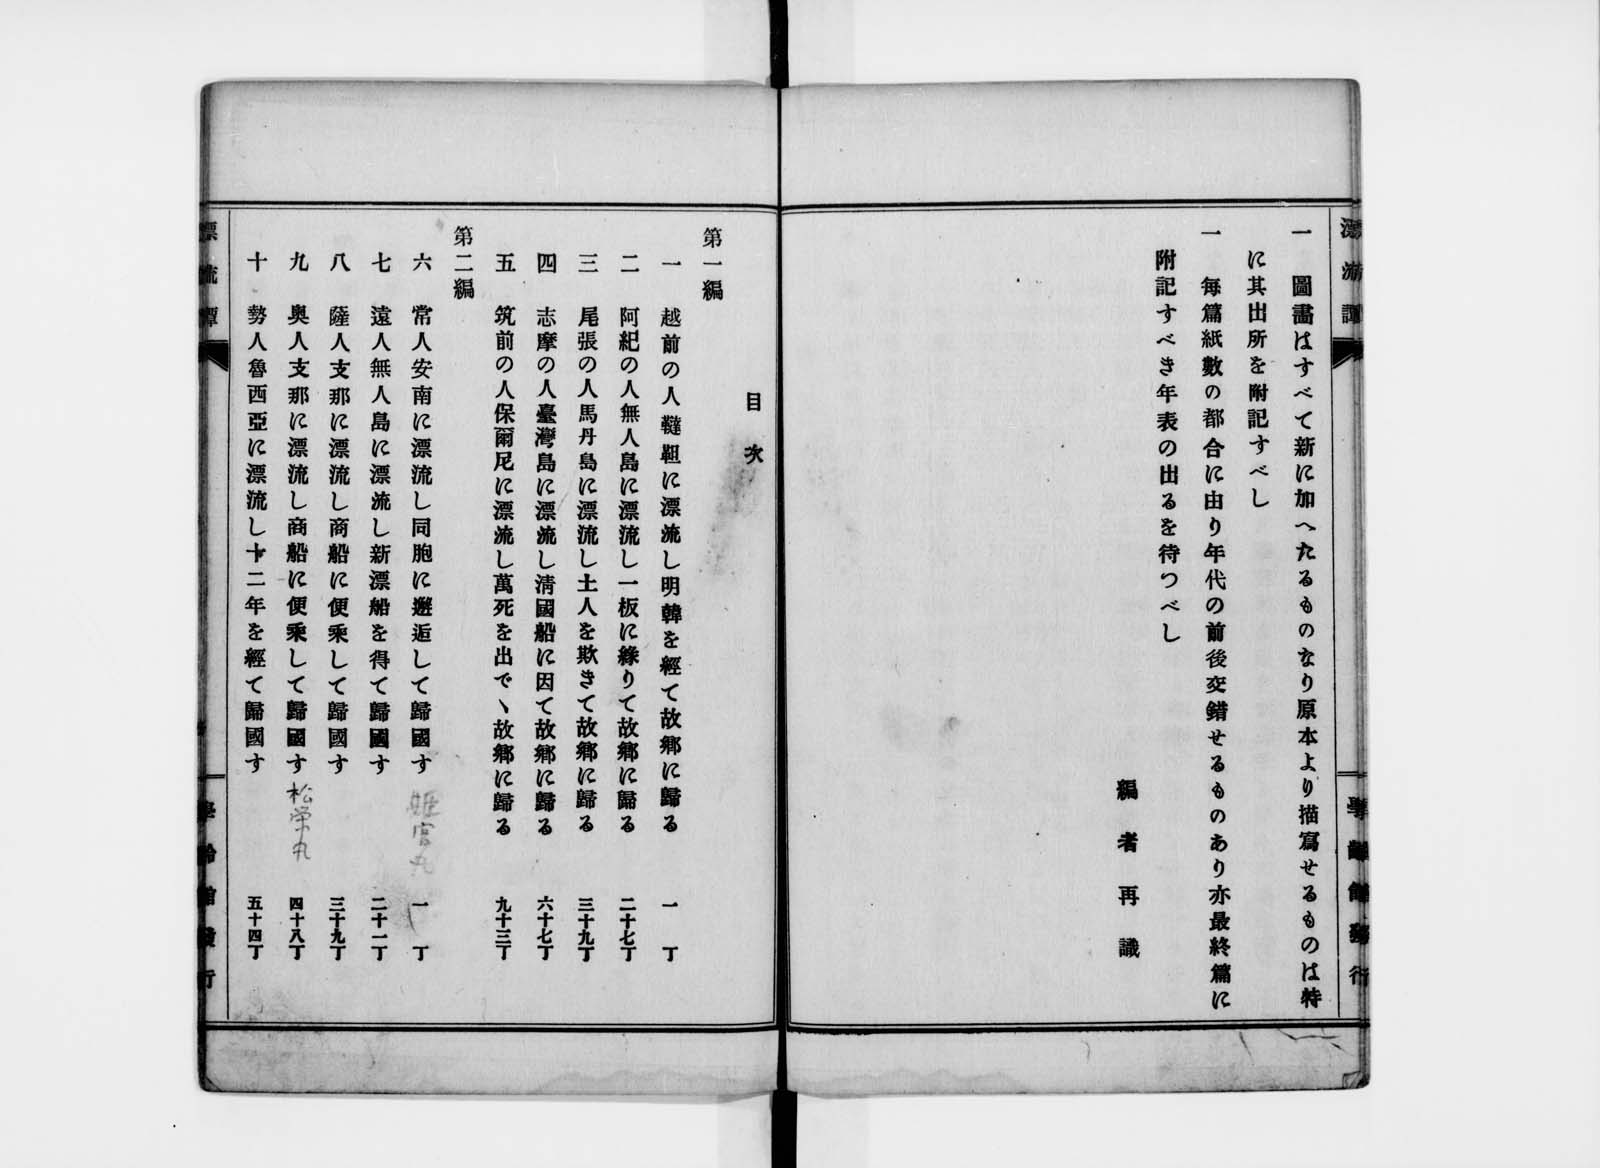 漂流譚
學齡館發行
一 圖畵はすべて新に加へたるものなり原本より描寫せるものは特
に其出所を附記すべし
一 毎篇紙數の都合に由り年代の前後交錯せるものあり亦最終篇に
附記すべき年表の出るを待つべし
編者再識
目次
第一編
一 越前の人韃靼に漂流し明韓を經て故鄕に歸る 一丁
二 阿紀の人無人島に漂流し一板に緣りて故鄕に歸る 二十七丁
三 尾張の人馬丹島に漂流し土人を欺きて故鄕に歸る 三十九丁
四 志摩の人臺灣島に漂流し淸國船に因て故鄕に歸る 六十七丁
五 筑前の人保爾尼に漂流し萬死を出でヽ故鄕に歸る 九十三丁
第二編
六 常人安南に漂流し同胞に邂逅して歸國す 姫宮丸 一丁
七 遠人無人島に漂流し新漂船を得て歸國す 二十一丁
八 薩人支那に漂流し商船に便乘して歸國す 三十九丁
九 奥人支那に漂流し商船に便乘して歸國す 松栄丸 四十八丁
十 勢人魯西亞に漂流し十二年を經て歸國す 五十四丁
漂流譚
學齡館發行